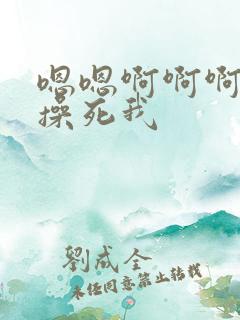 嗯嗯啊啊啊
操死我
劉成全
未经同意禁止转载